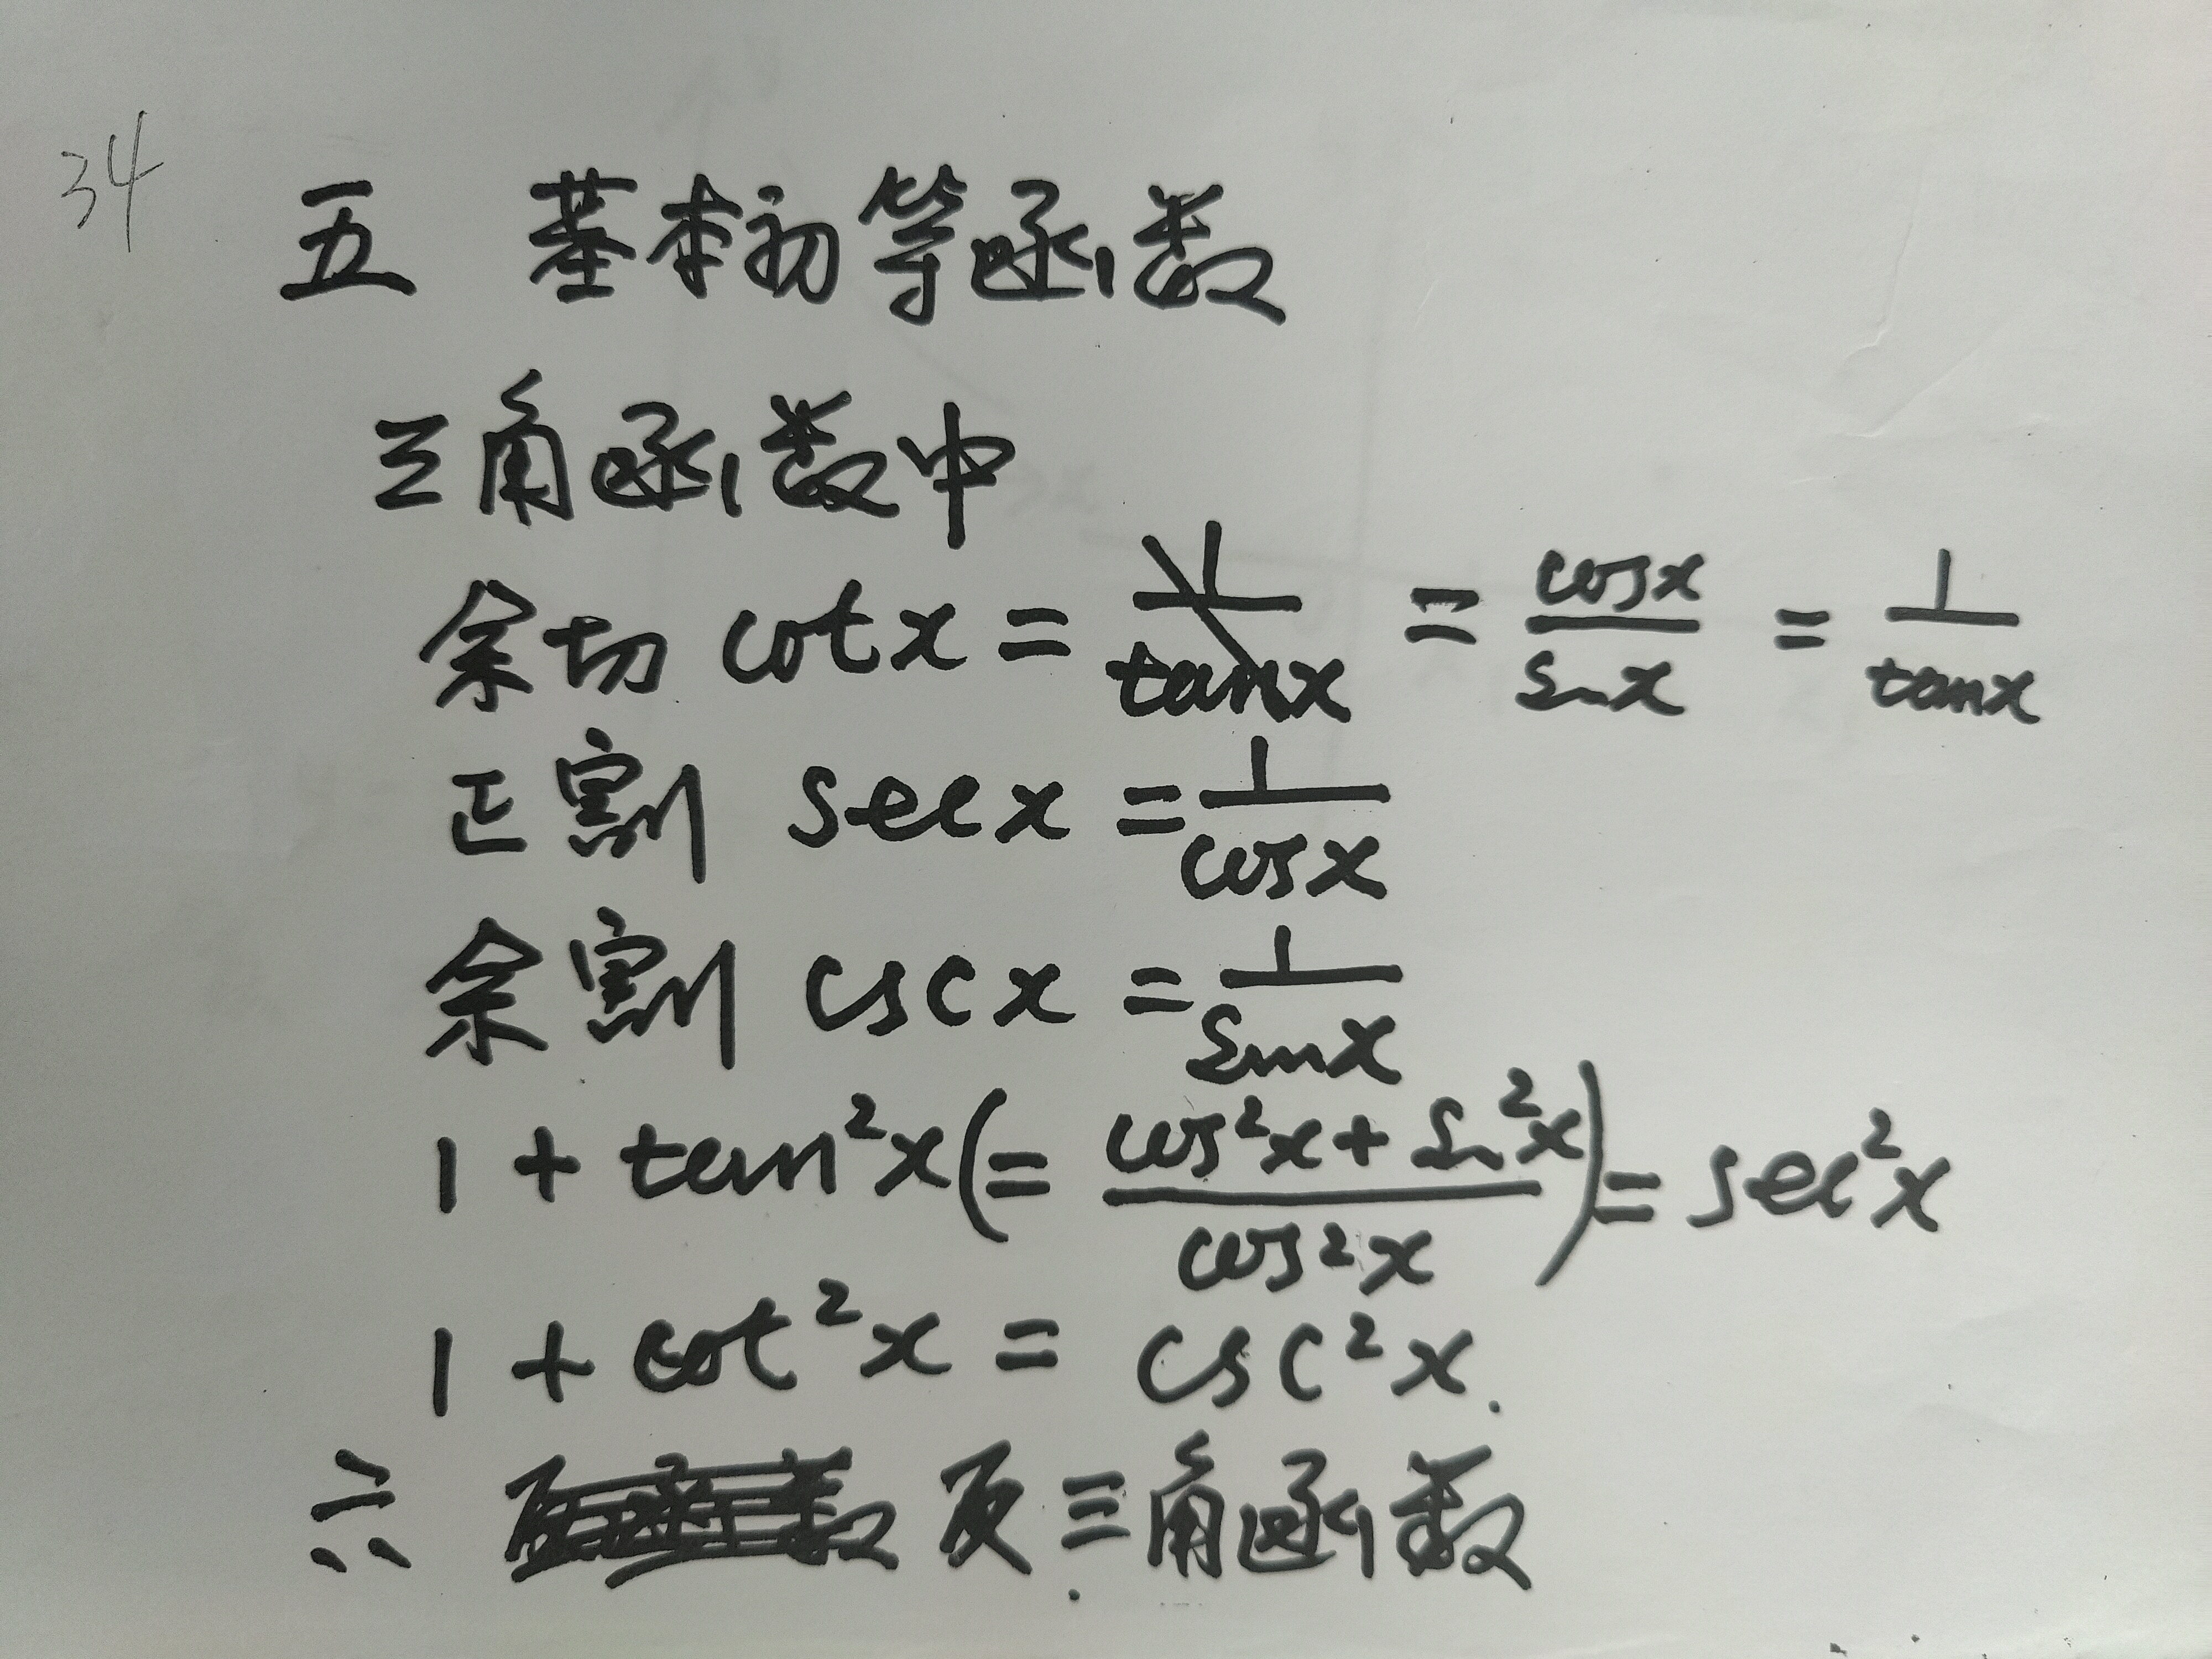 34
五 基本初等函数
三角函数中
余切 cot x = = cosx/sinx = 1/tanx
正割 sec x = 1/cosx
余割 csc x = 1/sinx
1 + tan²x (= (cos²x + sin²x)/cos²x) = sec²x
1 + cot²x = csc²x.
六 反三角函数